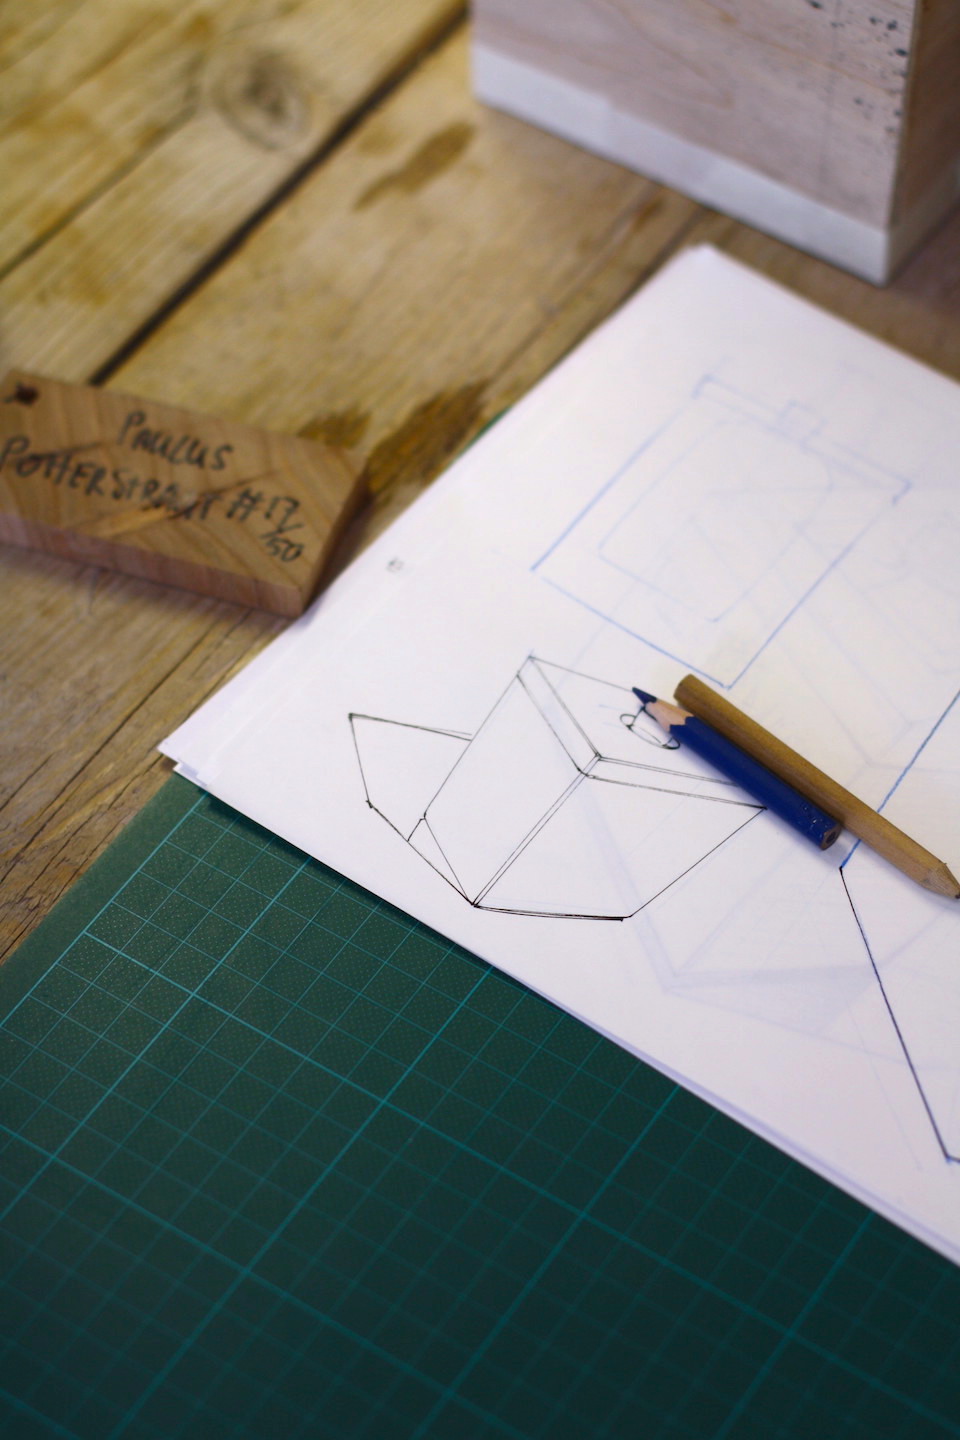 PAULUS
POTTERSTRAAT #17/
/50